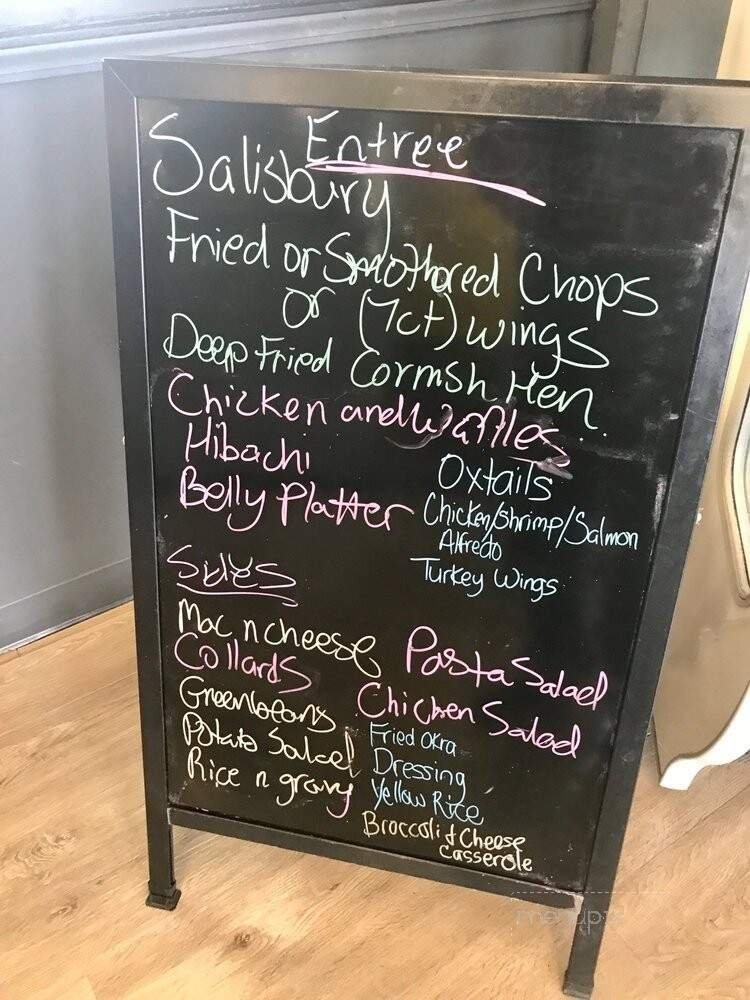 Entree
Salisbury
Fried or Smothored Chops
or (7ct) wings
Deep Fried Cornish Hen
Chicken and Waffles
Hibachi
Belly Platter
Oxtails
Chicken/Shrimp/Salmon
Alfredo
Turkey Wings
Sides
Mac n cheese
Collards
Greenbeans
Potato Salad
Rice n gravy
Pasta Salad
Chicken Salad
Fried Okra
Dressing
Yellow Rice
Broccoli & Cheese
Casserole